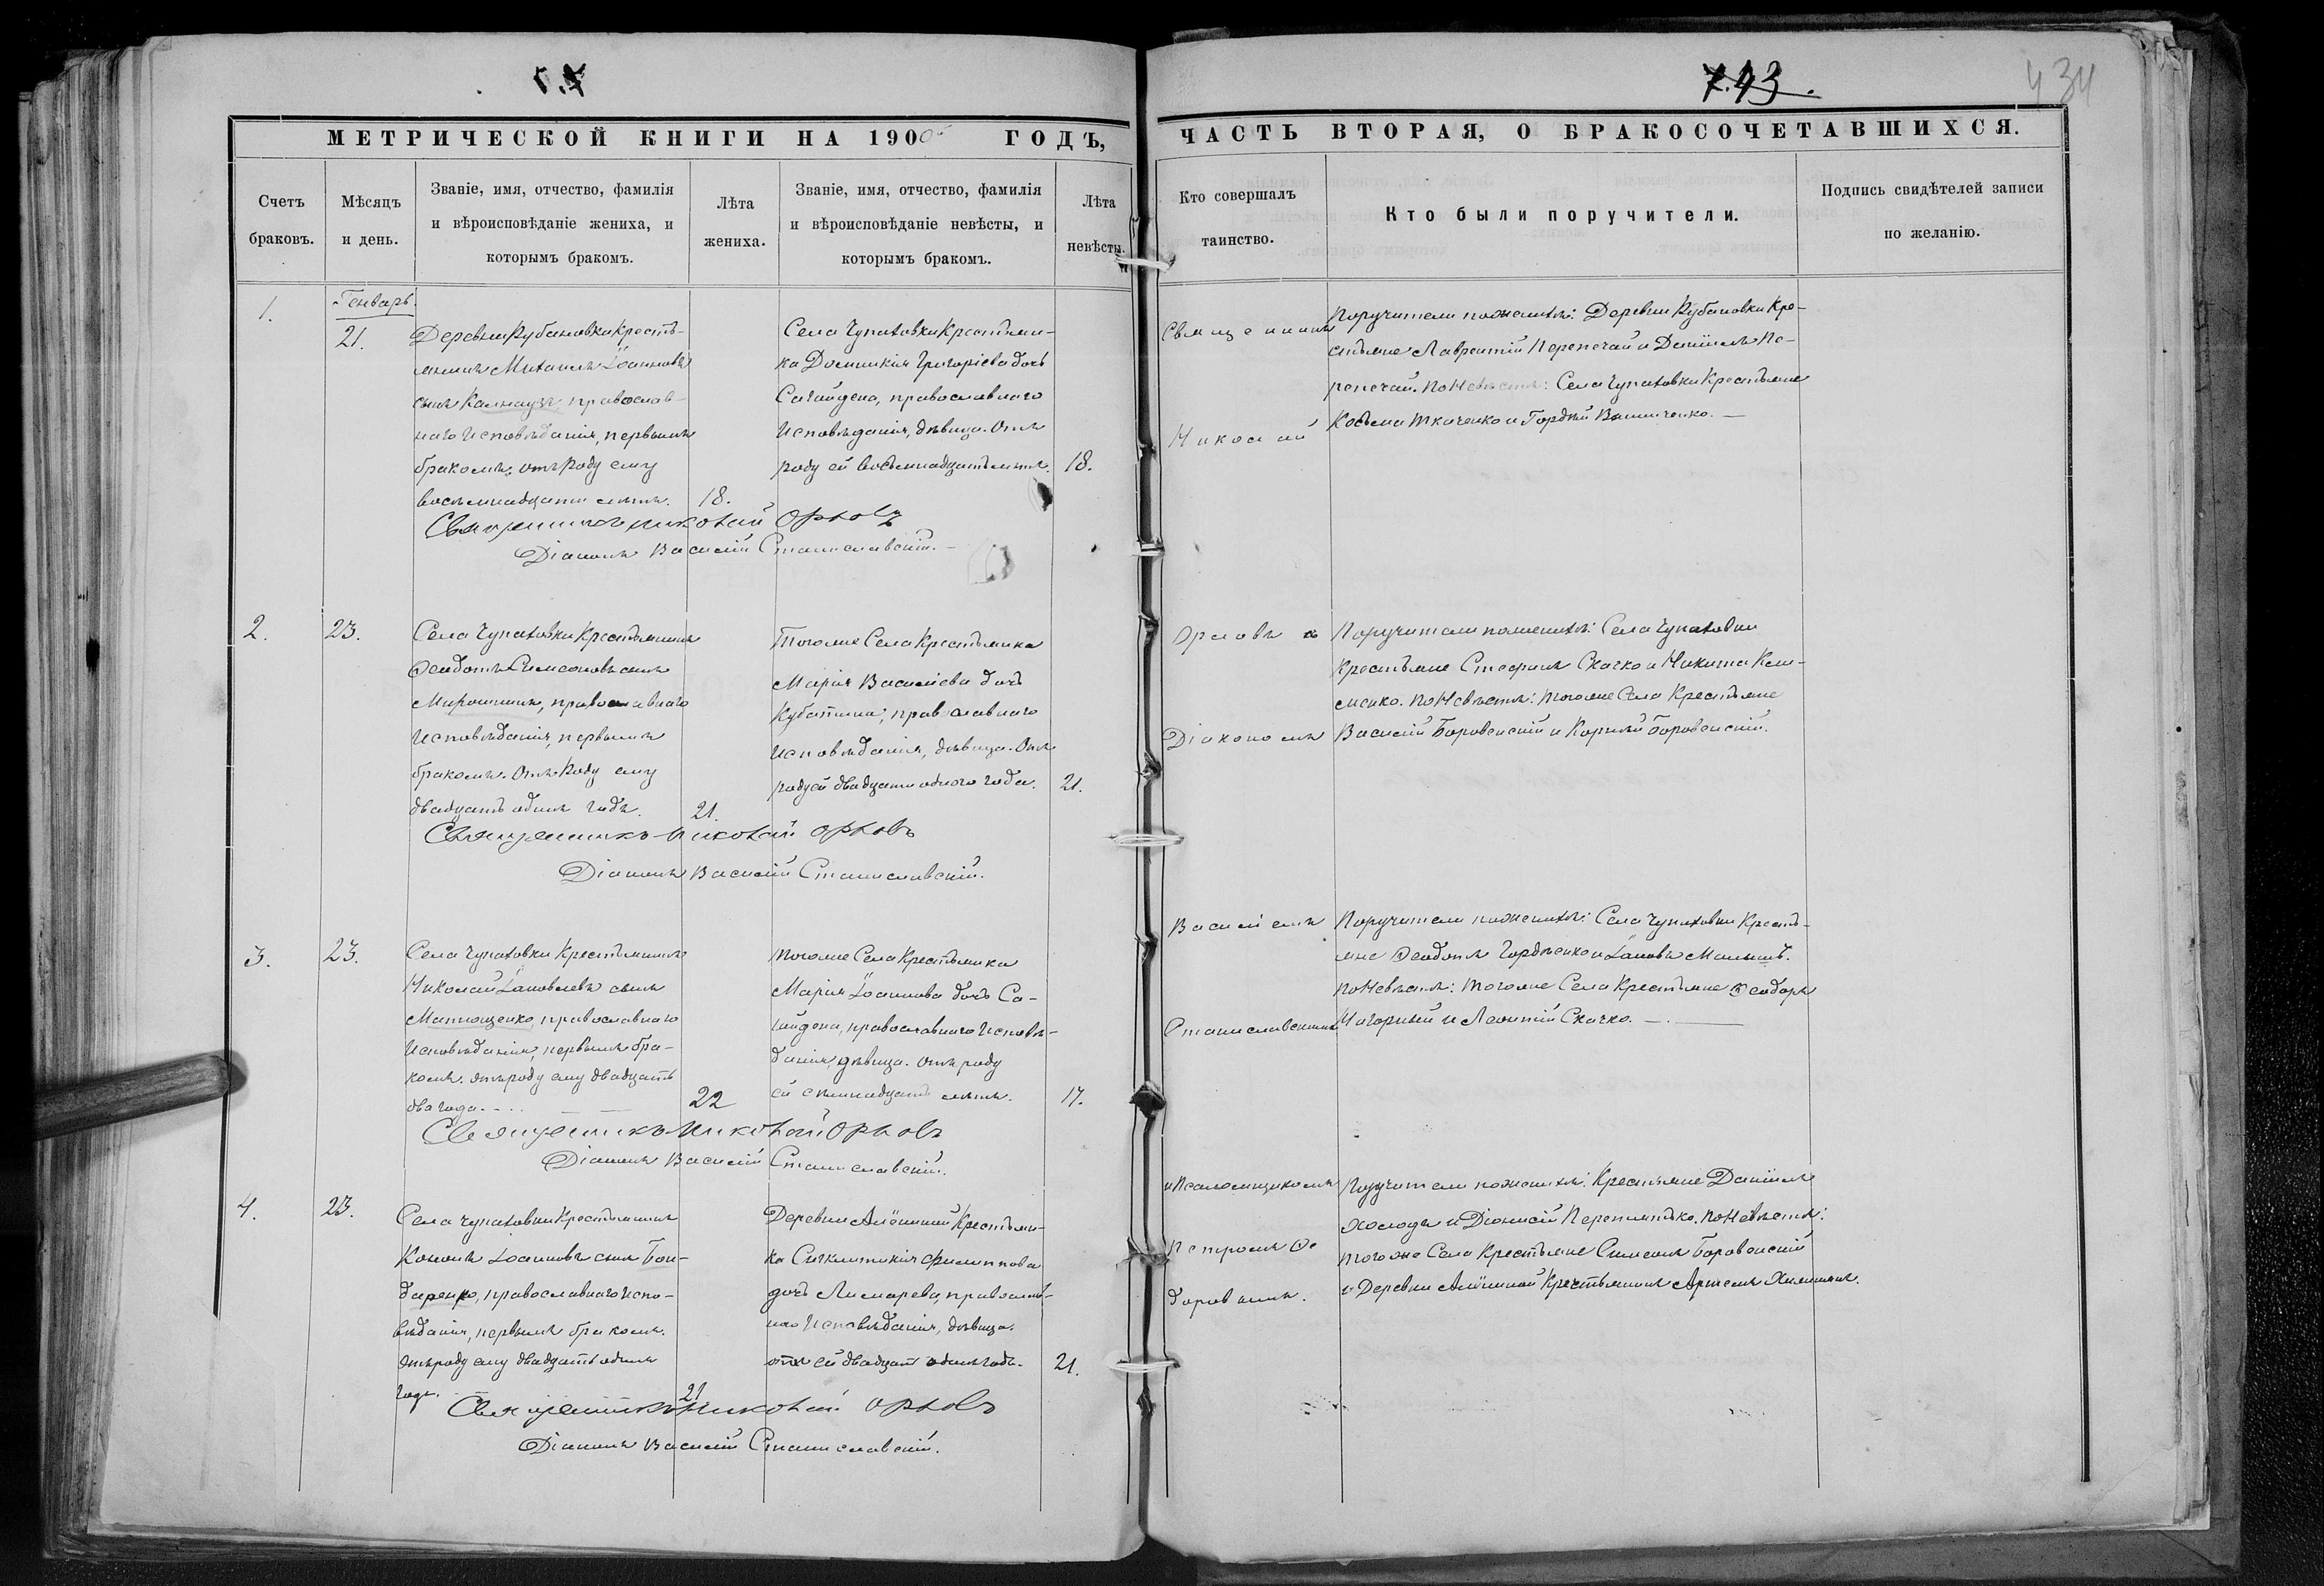 7.43.
434
МЕТРИЧЕСКОЙ КНИГИ НА 1900 ГОДЪ,
ЧАСТЬ ВТОРАЯ, О БРАКОСОЧЕТАВШИХСЯ.
Счетъ браковъ.
Мѣсяцъ и день.
Званіе, имя, отчество, фамилія
и вѣроисповѣданіе жениха, и
которымъ бракомъ.
Лѣта жениха.
Званіе, имя, отчество, фамилія
и вѣроисповѣданіе невѣсты, и
которымъ бракомъ.
Лѣта невѣсты.
Кто совершалъ
таинство.
Кто были поручители.
Подпись свидѣтелей записи
по желанію.
1.
Генварь.
21.
Деревни Кубановки Кресть-
янинъ Михаилъ Іоанновъ
сынъ Калнаузъ, православ-
наго Исповѣданія, первымъ
бракомъ. отъ Роду ему
восемнадцать лѣтъ.
18.
Села Чупаховки Крестьян-
ка Домникія Григоріева дочь
Сагайдена, православнаго
Исповѣданія, дѣвица. Отъ
роду ей восемнадцать лѣтъ.
18.
Священникъ Николай Орловъ
Діаконъ Василій Станиславскій.
2.
23.
Села Чупаховки Крестьянинъ
Ѳеодотъ Симеоновъ сынъ
Мирошникъ, православнаго
Исповѣданія, первымъ
бракомъ. Отъ Роду ему
двадцать одинъ годъ.
21.
Тогоже Села Крестьянка
Марія Василіева дочь
православнаго
Исповѣданія, дѣвица. Отъ
роду ей двадцать одного года.
21.
Священникъ Николай Орловъ
Діаконъ Василій Станиславскій.
3.
23.
Села Чупаховки Крестьянинъ
Николай Іаковлевъ сынъ
Матющенко, православнаго
Исповѣданія, первымъ бра-
комъ. отъ роду ему двадцать
два года.
22
тогоже Села Крестьянка
Марія Іоаннова дочь Са-
гайдена, православнаго Исповѣ-
данія, дѣвица. отъ роду
ей семнадцать лѣтъ.
17.
Священникъ Николай Орловъ
Діаконъ Василій Станиславскій.
4.
23.
Села Чупаховки Крестьянинъ
Кононъ Іоанновъ сынъ Бон-
даренко, православнаго Испо-
вѣданія, первымъ бракомъ.
отъ роду ему двадцать одинъ
годъ.
21
Деревни Алёшиной Крестьян-
ка Синклитикія Филиппова
дочь Лимарева, православ-
наго Исповѣданія, дѣвица.
отъ ей двадцать одинъ годъ.
21.
Священникъ Николай Орловъ
Діаконъ Василій Станиславскій.
Священникъ
Николай
Орловъ съ
Діакономъ
Василіемъ
Станиславскимъ
и Псаломщикомъ
Петромъ Ѳе
доровымъ.
Поручители по женихѣ: Деревни Кубановки Кре-
стьяне Лаврентій Перепечай и Даніилъ Пе-
репечай. По Невѣстѣ: Села Чупаховки Крестьяне
Косьма Ткаченко и Гордѣй Винниченко.
Поручители по женихѣ: Села Чупаховки
Крестьяне Стефанъ Скачко и Никита Кли-
менко. По Невѣстѣ: Тогоже Села Крестьяне
Василій Боровенскій и Корнилій Боровенскій.
Поручители по женихѣ: Села Чупаховки Кресть-
яне Ѳеодотъ Гордѣенко и Іаковъ Малышъ.
По Невѣстѣ: Тогоже Села Крестьяне Ѳеодоръ
Нагорный и Леонтій Скачко.
Поручители по женихѣ: Крестьяне Даніилъ
Холодъ и Діонисій Перепятько. По Невѣстѣ:
того же Села Крестьяне Симеонъ Боровенскій
и Деревни Алёшиной Крестьянинъ Артемъ